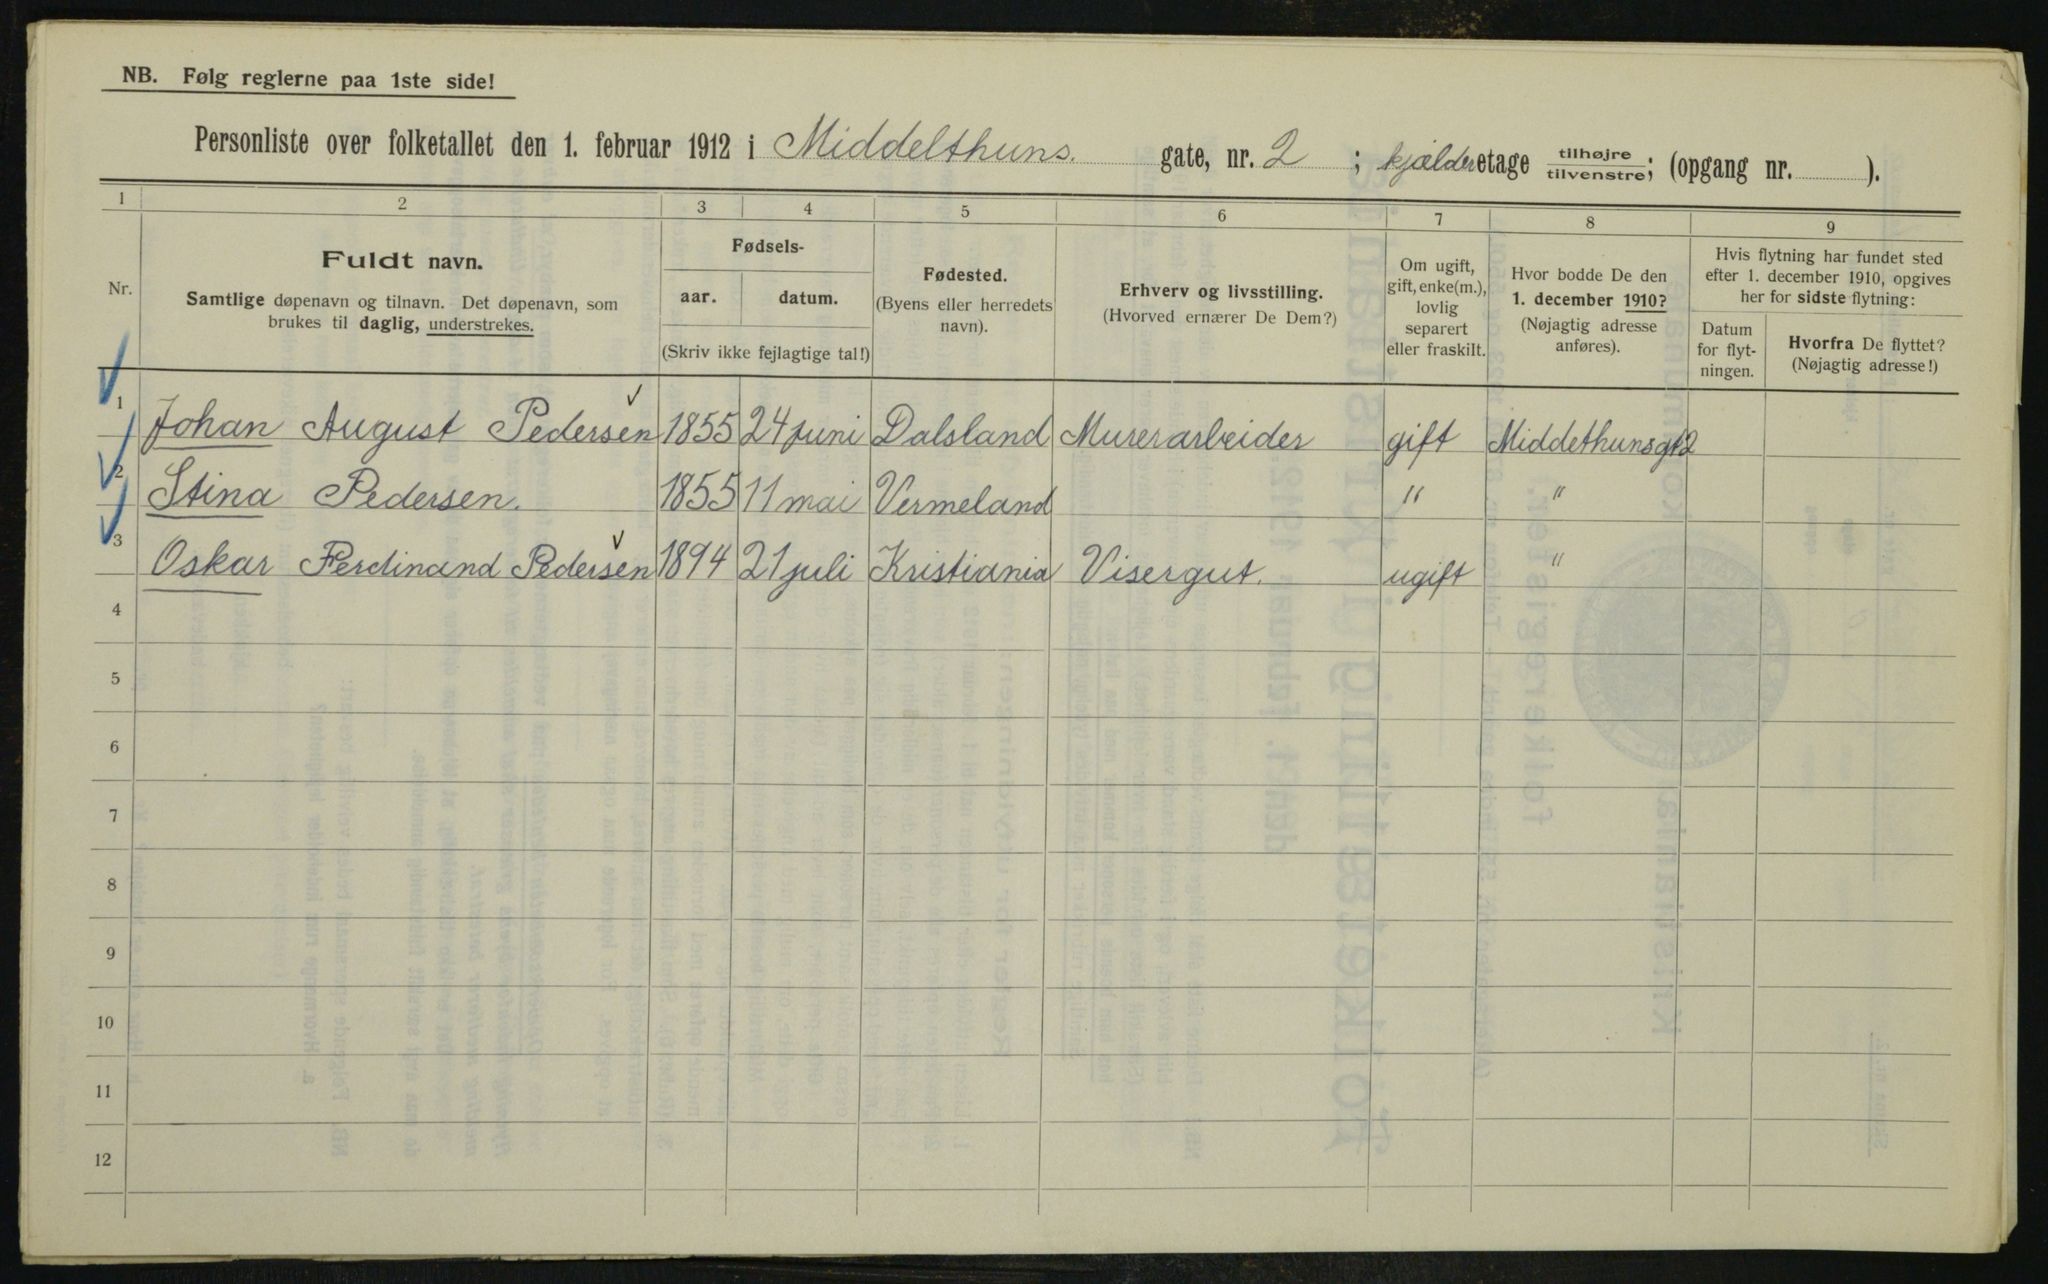 NB. Følg reglerne paa 1ste side!
Personliste over folketallet den 1. februar 1912 i Middelthuns. gate, nr. 2 ; kjælderetage tilhøjre tilvenstre; (opgang nr. ).
1 2 3 4 5 6 7 8 9
Nr.
Fuldt navn.
Samtlige døpenavn og tilnavn. Det døpenavn, som
brukes til daglig, understrekes.
Fødsels-
aar. datum.
(Skriv ikke fejlagtige tal!)
Fødested.
(Byens eller herredets
navn).
Erhverv og livsstilling.
(Hvorved ernærer De Dem?)
Om ugift,
gift, enke(m.),
lovlig
separert
eller fraskilt.
Hvor bodde De den
1. december 1910?
(Nøjagtig adresse
anføres).
Hvis flytning har fundet sted
efter 1. december 1910, opgives
her for sidste flytning:
Datum
for flyt-
ningen.
Hvorfra De flyttet?
(Nøjagtig adresse!)
1 Johan August Pedersen 1855 24 juni Dalsland Murerarbeider gift Middethunsgt 2
2 Stina Pedersen. 1855 11 mai Vermeland " "
3 Oskar Ferdinand Pedersen 1894 21 juli Kristiania Visergut. ugift "
4
5
6
7
8
9
10
11
12